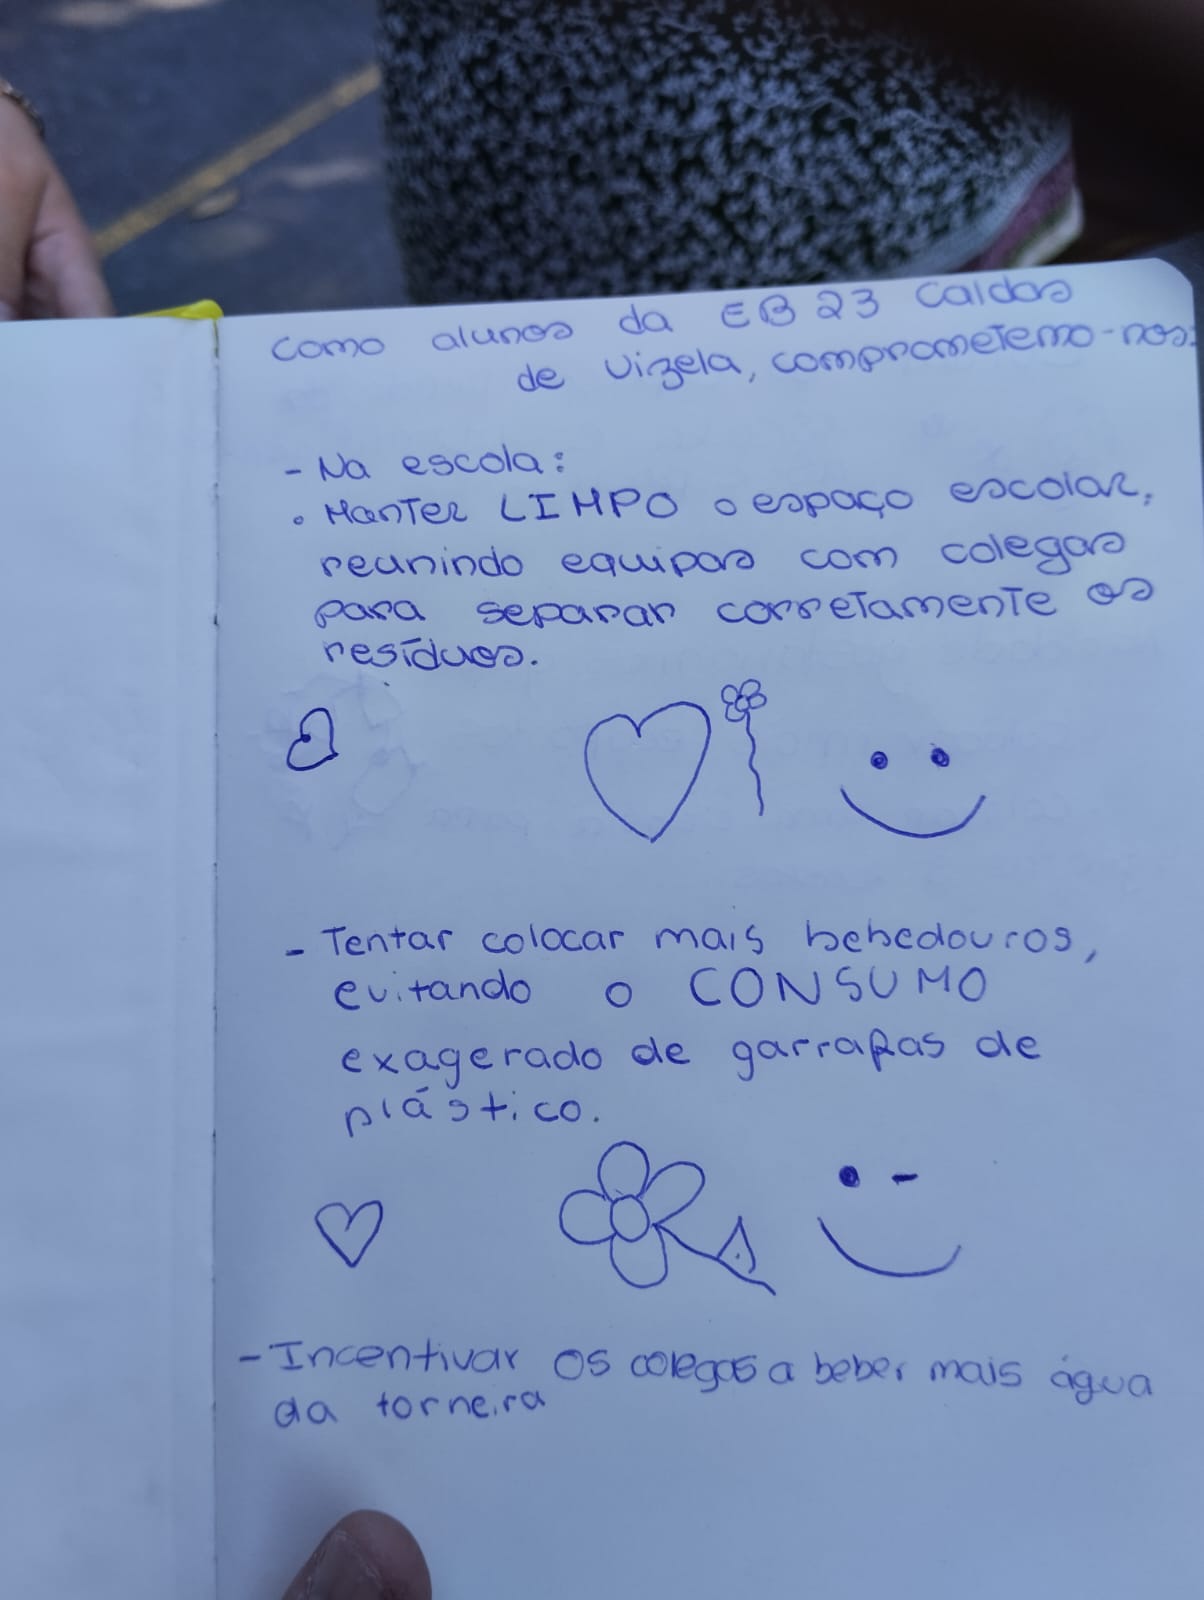 Como alunos da EB 23 Caldas
de Vizela, comprometemo-nos:
- Na escola:
• Manter LIMPO o espaço escolar,
reunindo equipas com colegas
para separar corretamente os
resíduos.
- Tentar colocar mais bebedouros,
evitando o CONSUMO
exagerado de garrafas de
plástico.
- Incentivar os colegas a beber mais água
da torneira